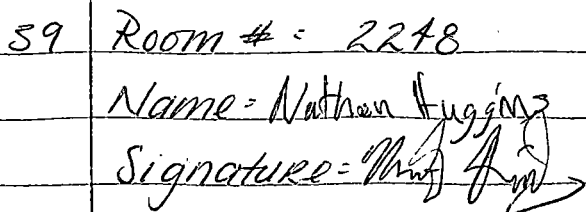 59 Room # : 2248
Name = Nathan Huggins
Signature =